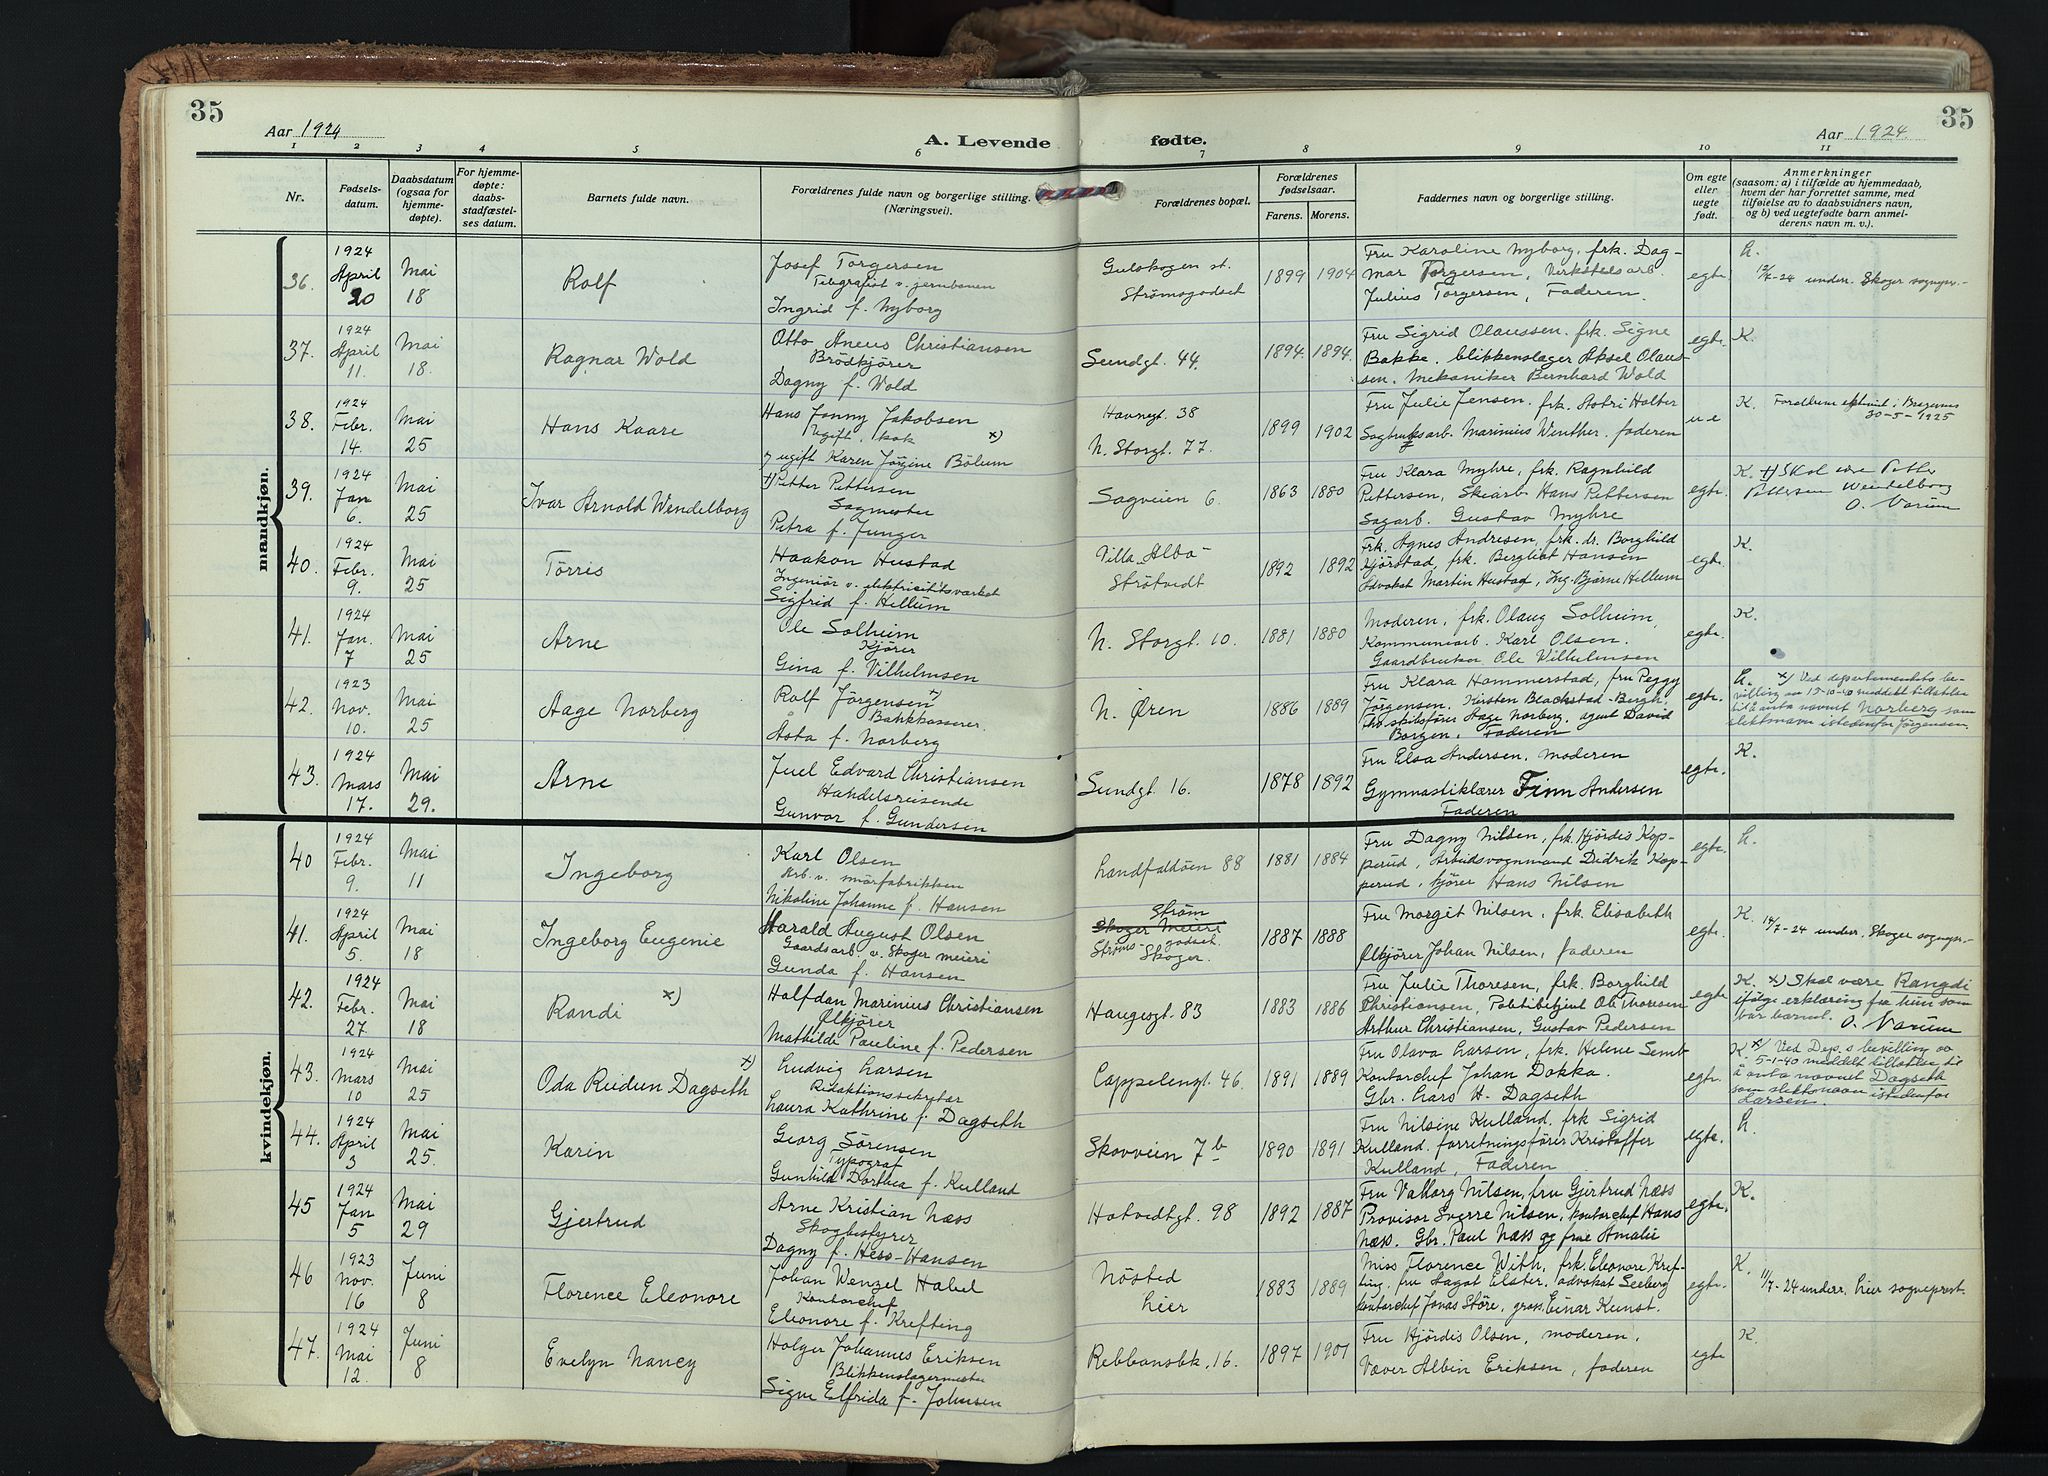 35
Aar 1924
A. Levende
fødte.
Aar 1924
35
1 2 3 4 5 6 7 8 9 10 11
Nr.
Fødsels-
datum.
Daabsdatum
(ogsaa for
hjemme-
døpte).
For hjemme-
døpte:
daabs-
stadfæstel-
ses datum.
Barnets fulde navn.
Forældrenes fulde navn og borgerlige stilling.
(Næringsvei).
Forældrenes bopæl.
Forældrenes
fødselsaar.
Farens. Morens.
Faddernes navn og borgerlige stilling.
Om egte
eller
uegte
født.
Anmerkninger
(saasom: a) i tilfælde av hjemmedaab,
hvem der har forrettet samme, med
tilføielse av to daabsvidners navn,
og b) ved uegtefødte barn anmel-
derens navn m. v.).
mandkjøn.
36.
1924
April
20
Mai
18
Rolf
Josef Torgersen
Telegrafist v. jernbanen
Ingrid f. Nyborg
Gulskogen st.
Strømsgodset
1899 1904
Fru Karoline Nyborg, frk. Dag-
mar Torgersen, Verkstedsarb.
Julius Torgersen, Faderen.
egte
L.
12/7-24 underr. Skoger sognepr.
37.
1924
April
11.
Mai
18.
Ragnar Wold
Otto Aneus Christiansen
Brödkjører
Dagny f. Wold
Sundgt. 44.
1894. 1894.
Fru Sigrid Olaussen. frk. Signe
Bakke. blikkenslager Aksel Olaus-
sen. Mekaniker Bernhard Wold
egte.
K.
38.
1924
Febr.
14.
Mai
25
Hans Kaare
Hans Jonny Jakobsen
Ugift, kok x)
og ugift Karen Jørgine Bölum
Havnegt. 38
N. Storgt. 77.
1899 1902
Fru Julie Jensen. frk. Astri Holter
Sagbruksarb. Marinius Wenther. faderen
u e
K. Foreldrene ekteviet i Bragernes
30-5-1925
39.
1924
Jan
6.
Mai
25
Ivar Arnold Wendelborg
+) Petter Pettersen
Sagmester
Petra f. Junger
Sagveien 6.
1863 1880
Fru Klara Myhre, frk. Ragnhild
Pettersen, Skiarb. Hans Pettersen
Sagarb. Gustav Myhre
egte.
K. +) Skal være Petter
Pettersen Wendelborg
O. Varum
40.
1924
Febr.
9.
Mai
25
Törris
Haakon Hustad
Ingeniør v. elektricitetsverket
Sigfrid f. Hellum
Villa „Alba"
Strötvedt
1892 1892
Frk. Agnes Andresen, frk. dr. Borghild
Kjörstad, frk. Bergliot Hansen
advokat Martin Hustad, Ing. Bjarne Hellum
egte.
K.
41.
1924
Jan.
7
Mai
25
Arne
Ole Solheim
Kjører
Gina f. Vilhelmsen
N. Storgt. 10.
1881 1880
Moderen, frk. Olaug Solheim,
Kommunearb. Karl Olsen.
Gaardbruker Ole Vilhelmsen
egte.
K.
42.
1923
Nov.
10.
Mai
25
Aage Norberg
Rolf Jörgensen x)
Bankkasserer
Åsta f. Norberg
N. Øren
1886 1889
Fru Klara Hammerstad, fru Peggy
Jörgensen. Kirsten Blackstad-Bergh,
skibsfører Aage Norberg, agent David
Borgen, Faderen
egte.
L. x) Ved departementets be-
villing av 15-10-40 meddelt tillatelse
til å anta navnet Norberg som
slektsnavn istedenfor Jørgensen.
43.
1924
Mars
17.
Mai
29.
Arne
Juel Edvard Christiansen
Handelsreisende
Gunvor f. Gundersen
Sundgt. 16.
1878 1892
Fru Elsa Andersen, moderen
Gymnastiklærer Finn Andersen
Faderen
egte.
K.
kvindekjøn.
40
1924
Febr.
9.
Mai
11
Ingeborg
Karl Olsen
Arb. v. smörfabrikken
Nikoline Johanne f. Hansen
Landfaldöen 88
1881 1884
Fru Dagny Nilsen, frk. Hjördis Kop-
perud, Arbeidsvognmand Didrik Kop-
perud, kjører Hans Nilsen
egte.
L.
41.
1924
April
5.
Mai
18
Ingeborg Eugenie
Harald August Olsen
Gaardsarb. v. Skoger meieri
Gunda f. Hansen
Strøm
Skoger Meieri
Strøms- godset.
Skoger.
1887 1888
Fru Margit Nilsen, frk. Elisabeth
Ølkjører Johan Nilsen, faderen
egte.
K. 14/7-24 underr. Skoger sognepr.
42.
1924
Febr.
27.
Mai
18
Randi x)
Halfdan Marinius Christiansen
Ølkjører
Mathilde Pauline f. Pedersen
Haugesgt. 83
1883 1886
Fru Julie Thoresen, frk. Borghild
Christiansen, Politibetjent Ole Thoresen
Arthur Christiansen, Gustav Pedersen
egte
K. x) Skal være Rangdi
ifølge erklæring fra hun som
bar barnet. O. Varum
43.
1924
Mars
10
Mai
25
Oda Reidun Dagseth x)
Ludvig Larsen
Redaktionssekretær
Laura Kathrine f. Dagseth
Cappelengt. 46.
1891 1889
Fru Olava Larsen, frk. Helene Semb
Kontorchef Johan Dokka.
Gbr. Lars H. Dagseth
egte.
K. x) Ved Dep.s bevilling av
5-1-40 meddelt tillatelse til
å anta navnet Dagseth
som slektsnavn istedenfor
Larsen.
44.
1924
April
3
Mai
25.
Karin
Georg Sörensen
Typograf
Gunhild Dorthea f. Kulland
Skovveien 7 b
1890 1891
Fru Nilsine Kulland, frk Sigrid
Kulland. forretningsfører Kristoffer
Kulland, Faderen
egte.
L.
45
1924
Jan
5
Mai
29
Gjertrud
Arne Kristian Næss
Skogbestyrer
Dagny f. Hess-Hansen
Hotvedtgt. 98
1892 1887
Fru Valborg Nilsen, fru Gjertrud Næss
Provisor Sverre Nilsen, kontorchef Hans
Næss. Gbr. Paul Næss og frue Amalie
egte.
K.
46
1923
Nov.
16
Juni
8
Florence Eleonore
Johan Wenzel Habel
Kontorchef
Eleonore f. Krefting
Nösted
Lier
1883 1889
Miss Florence With, frk. Eleonore Kref-
ting, fru Aagot Elster, advokat Seeberg
kontorchef Jonas Störe, gross. Einar Kunst.
egte.
K.
11/7-24 underr. Lier sogneprest.
47.
1924
Mai
12.
Juni
8
Evelyn Nancy
Holger Johannes Eriksen
Blikkenslagermester
Signe Elfrida f. Johnsen
Rebbansbk. 16.
1897 1901
Fru Hjördis Olsen, moderen,
Væver Albin Eriksen, faderen
egte
K.